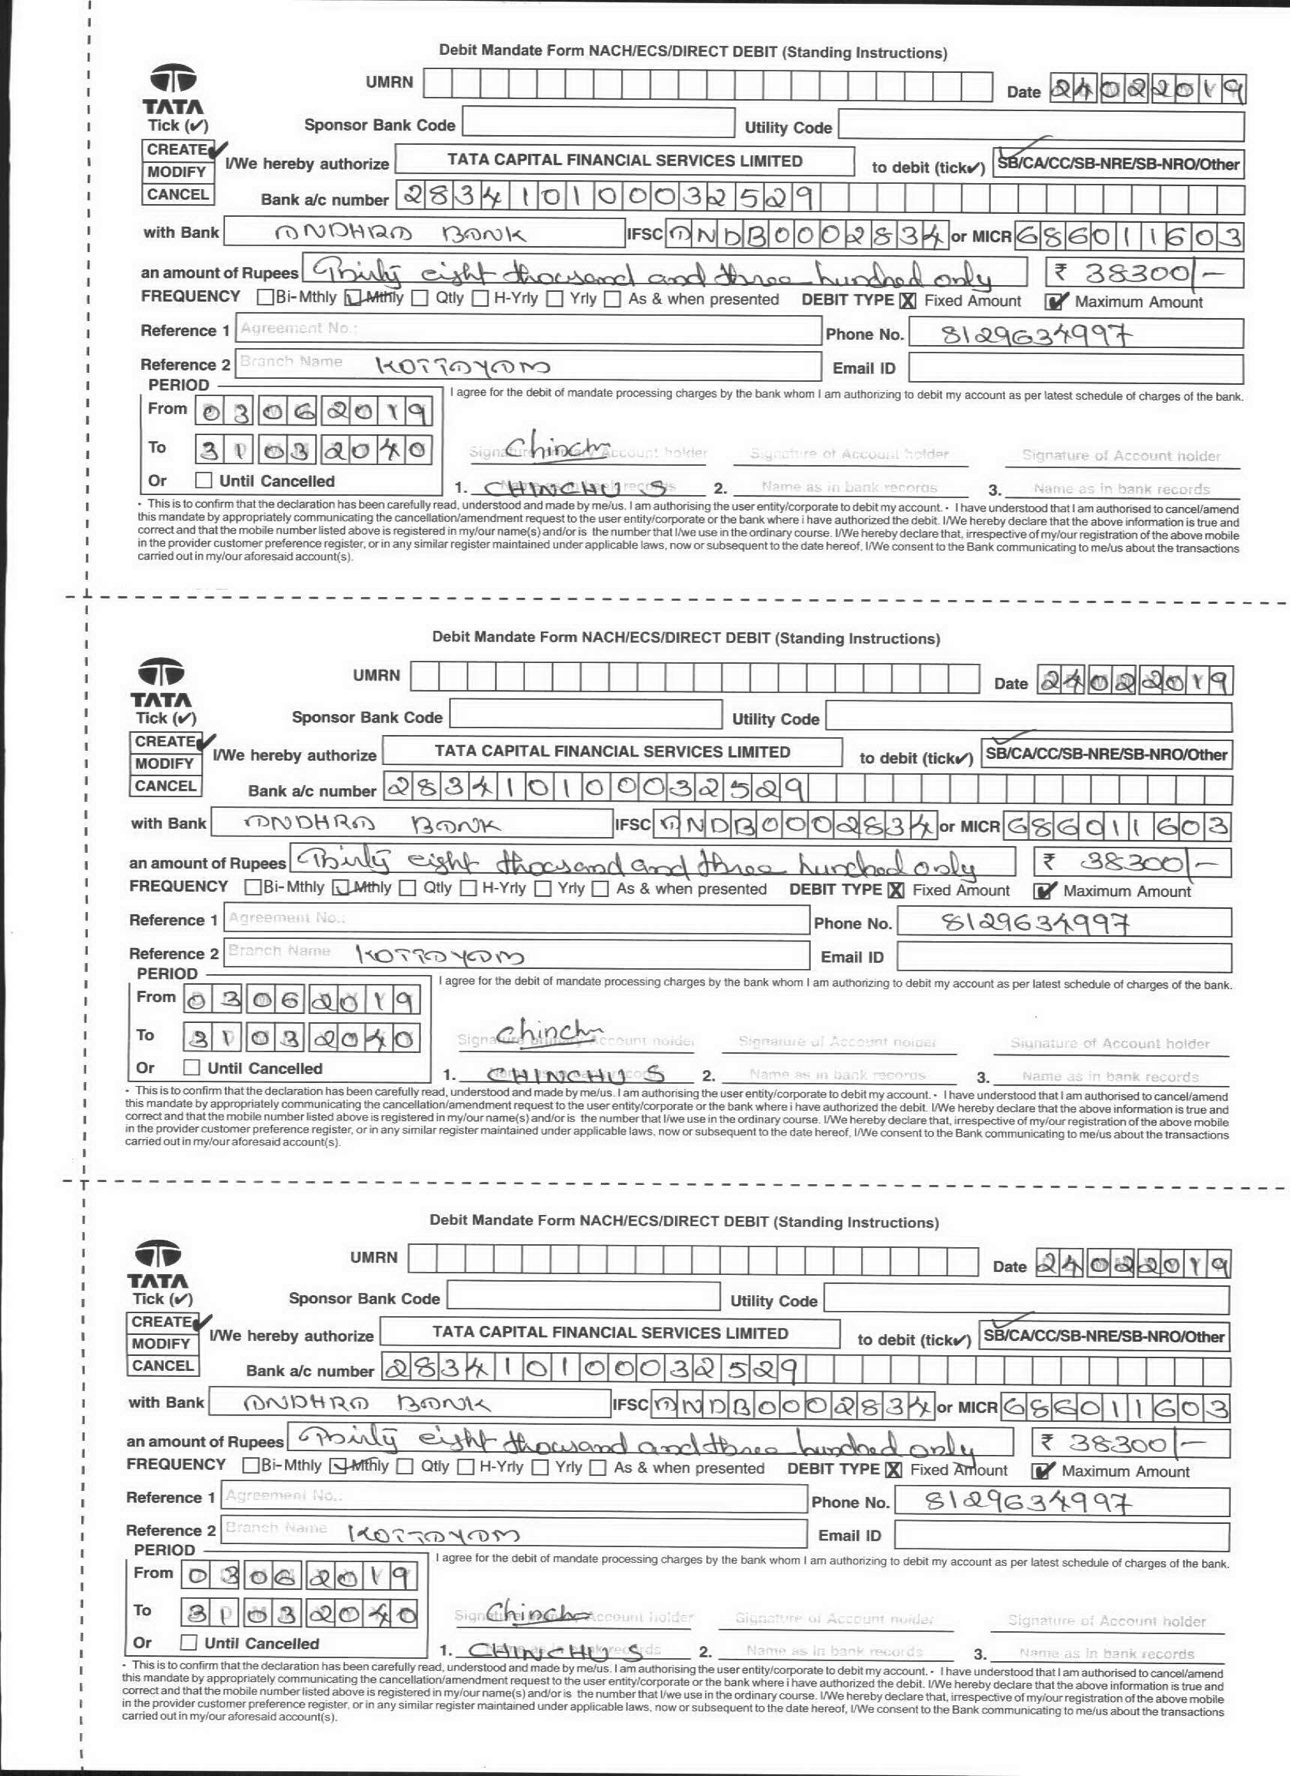 Debit Mandate Form NACH/ECS/DIRECT DEBIT (Standing Instructions)
UMRN Date 24022019
TATA
Tick (✔) Sponsor Bank Code Utility Code
CREATE ✔ I/We hereby authorize TATA CAPITAL FINANCIAL SERVICES LIMITED to debit (tick✔) SB/CA/CC/SB-NRE/SB-NRO/Other
MODIFY
CANCEL Bank a/c number 283410100032529
with Bank ANDHRA BANK IFSC ANDB0002834 or MICR 686011603
an amount of Rupees Thirty eight thousand and three hundred only ₹ 38300/-
FREQUENCY Bi-Mthly Mthly Qtly H-Yrly Yrly As & when presented DEBIT TYPE X Fixed Amount ✔ Maximum Amount
Reference 1 Agreement No.: Phone No. 8129634997
Reference 2 Branch Name KOTTAYAM Email ID
PERIOD I agree for the debit of mandate processing charges by the bank whom I am authorizing to debit my account as per latest schedule of charges of the bank.
From 03062019
To 31032040 Chinchu Signature of Account holder Signature of Account holder
Or Until Cancelled 1. CHINCHU S 2. Name as in bank records 3. Name as in bank records
• This is to confirm that the declaration has been carefully read, understood and made by me/us. I am authorising the user entity/corporate to debit my account. • I have understood that I am authorised to cancel/amend
this mandate by appropriately communicating the cancellation/amendment request to the user entity/corporate or the bank where i have authorized the debit. I/We hereby declare that the above information is true and
correct and that the mobile number listed above is registered in my/our name(s) and/or is the number that I/we use in the ordinary course. I/We hereby declare that, irrespective of my/our registration of the above mobile
in the provider customer preference register, or in any similar register maintained under applicable laws, now or subsequent to the date hereof, I/We consent to the Bank communicating to me/us about the transactions
carried out in my/our aforesaid account(s).
Debit Mandate Form NACH/ECS/DIRECT DEBIT (Standing Instructions)
UMRN Date 24022019
TATA
Tick (✔) Sponsor Bank Code Utility Code
CREATE ✔ I/We hereby authorize TATA CAPITAL FINANCIAL SERVICES LIMITED to debit (tick✔) SB/CA/CC/SB-NRE/SB-NRO/Other
MODIFY
CANCEL Bank a/c number 283410100032529
with Bank ANDHRA BANK IFSC ANDB0002834 or MICR 686011603
an amount of Rupees Thirty eight thousand and three hundred only ₹ 38300/-
FREQUENCY Bi-Mthly Mthly Qtly H-Yrly Yrly As & when presented DEBIT TYPE X Fixed Amount ✔ Maximum Amount
Reference 1 Agreement No.: Phone No. 8129634997
Reference 2 Branch Name KOTTAYAM Email ID
PERIOD I agree for the debit of mandate processing charges by the bank whom I am authorizing to debit my account as per latest schedule of charges of the bank.
From 03062019
To 31032040 Chinchu Signature of Account holder Signature of Account holder
Or Until Cancelled 1. CHINCHU S 2. Name as in bank records 3. Name as in bank records
• This is to confirm that the declaration has been carefully read, understood and made by me/us. I am authorising the user entity/corporate to debit my account. • I have understood that I am authorised to cancel/amend
this mandate by appropriately communicating the cancellation/amendment request to the user entity/corporate or the bank where i have authorized the debit. I/We hereby declare that the above information is true and
correct and that the mobile number listed above is registered in my/our name(s) and/or is the number that I/we use in the ordinary course. I/We hereby declare that, irrespective of my/our registration of the above mobile
in the provider customer preference register, or in any similar register maintained under applicable laws, now or subsequent to the date hereof, I/We consent to the Bank communicating to me/us about the transactions
carried out in my/our aforesaid account(s).
Debit Mandate Form NACH/ECS/DIRECT DEBIT (Standing Instructions)
UMRN Date 24022019
TATA
Tick (✔) Sponsor Bank Code Utility Code
CREATE ✔ I/We hereby authorize TATA CAPITAL FINANCIAL SERVICES LIMITED to debit (tick✔) SB/CA/CC/SB-NRE/SB-NRO/Other
MODIFY
CANCEL Bank a/c number 283410100032529
with Bank ANDHRA BANK IFSC ANDB0002834 or MICR 686011603
an amount of Rupees Thirty eight thousand and three hundred only ₹ 38300/-
FREQUENCY Bi-Mthly Mthly Qtly H-Yrly Yrly As & when presented DEBIT TYPE X Fixed Amount ✔ Maximum Amount
Reference 1 Agreement No.: Phone No. 8129634997
Reference 2 Branch Name KOTTAYAM Email ID
PERIOD I agree for the debit of mandate processing charges by the bank whom I am authorizing to debit my account as per latest schedule of charges of the bank.
From 03062019
To 31032040 Chinchu Signature of Account holder Signature of Account holder
Or Until Cancelled 1. CHINCHU S 2. Name as in bank records 3. Name as in bank records
• This is to confirm that the declaration has been carefully read, understood and made by me/us. I am authorising the user entity/corporate to debit my account. • I have understood that I am authorised to cancel/amend
this mandate by appropriately communicating the cancellation/amendment request to the user entity/corporate or the bank where i have authorized the debit. I/We hereby declare that the above information is true and
correct and that the mobile number listed above is registered in my/our name(s) and/or is the number that I/we use in the ordinary course. I/We hereby declare that, irrespective of my/our registration of the above mobile
in the provider customer preference register, or in any similar register maintained under applicable laws, now or subsequent to the date hereof, I/We consent to the Bank communicating to me/us about the transactions
carried out in my/our aforesaid account(s).